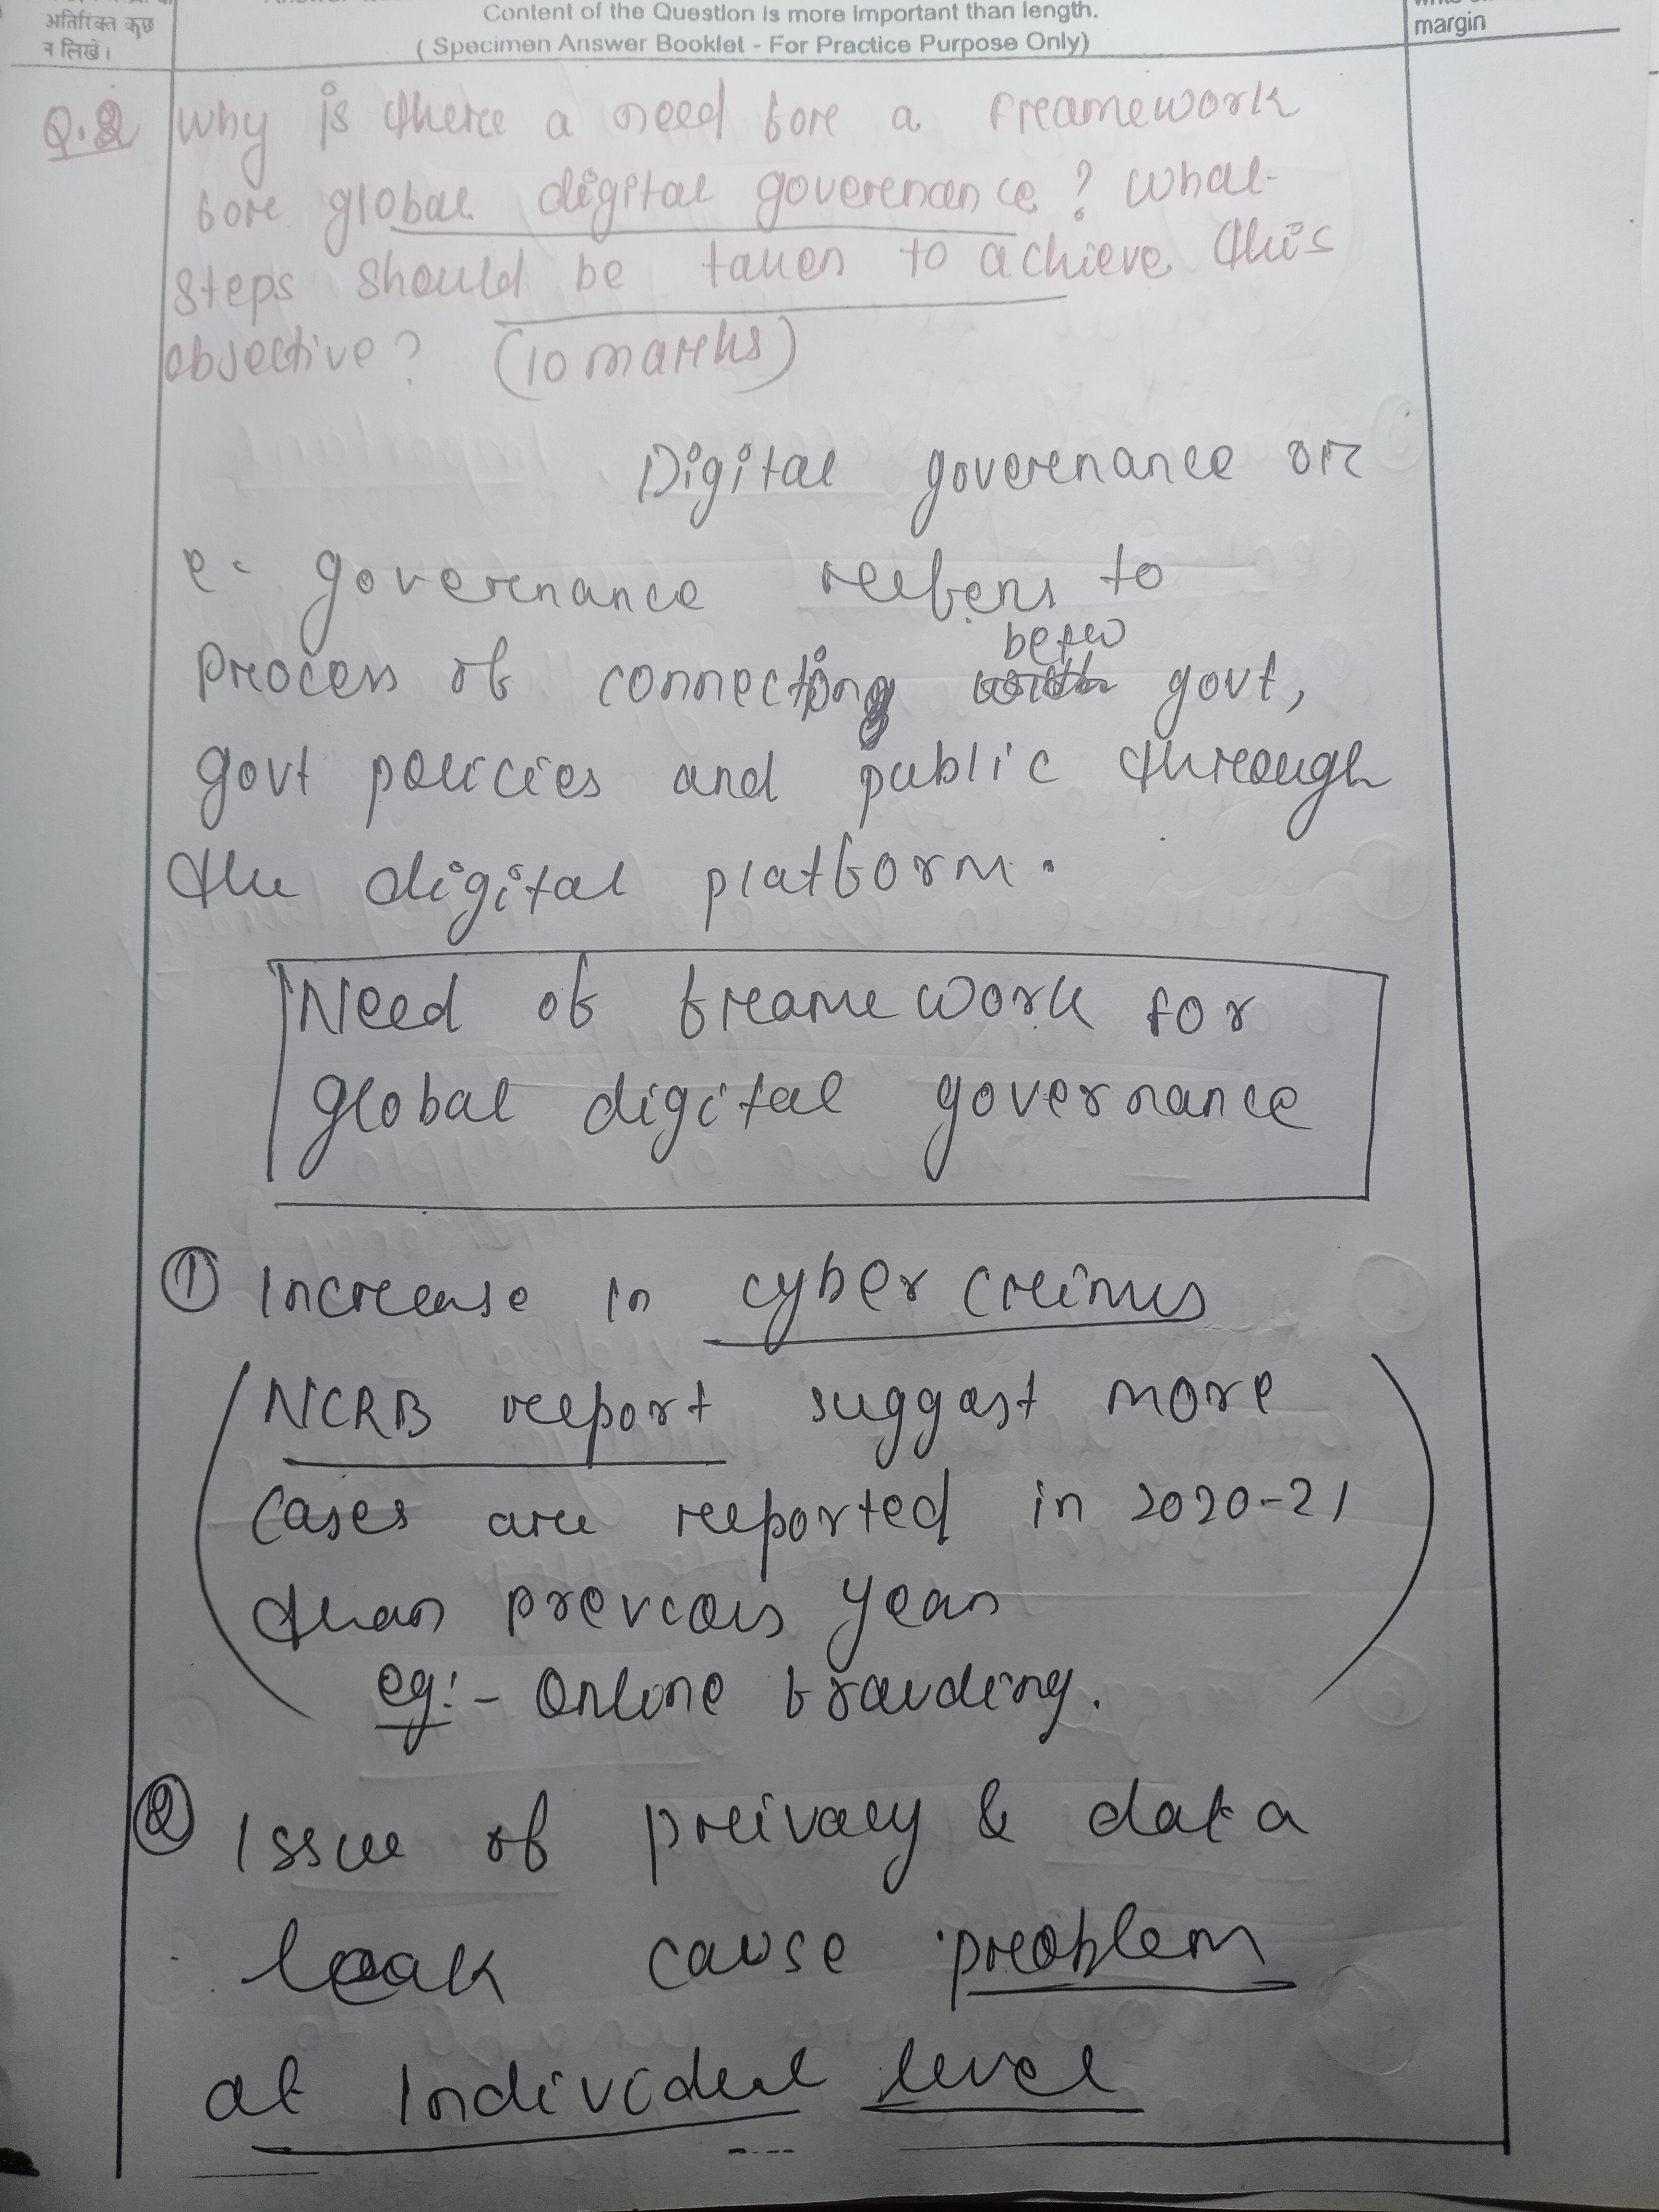 अतिरिक्त कुछ
न लिखें।
Content of the Question is more important than length.
( Specimen Answer Booklet - For Practice Purpose Only)
margin
Q.2 Why is there a need for a framework
for global digital governance? What
steps should be taken to achieve this
objective? (10 marks)
Digital governance or
e- governance refers to
Process of connecting betw govt,
govt policies and public through
the digital platform.
Need of framework for
global digital governance
① Increase in cyber crimes
NCRB report suggast more
Cases are reported in 2020-21
than previous year
eg:- Online frauding.
② Issue of privacy & data
leak cause problem
at Individual level